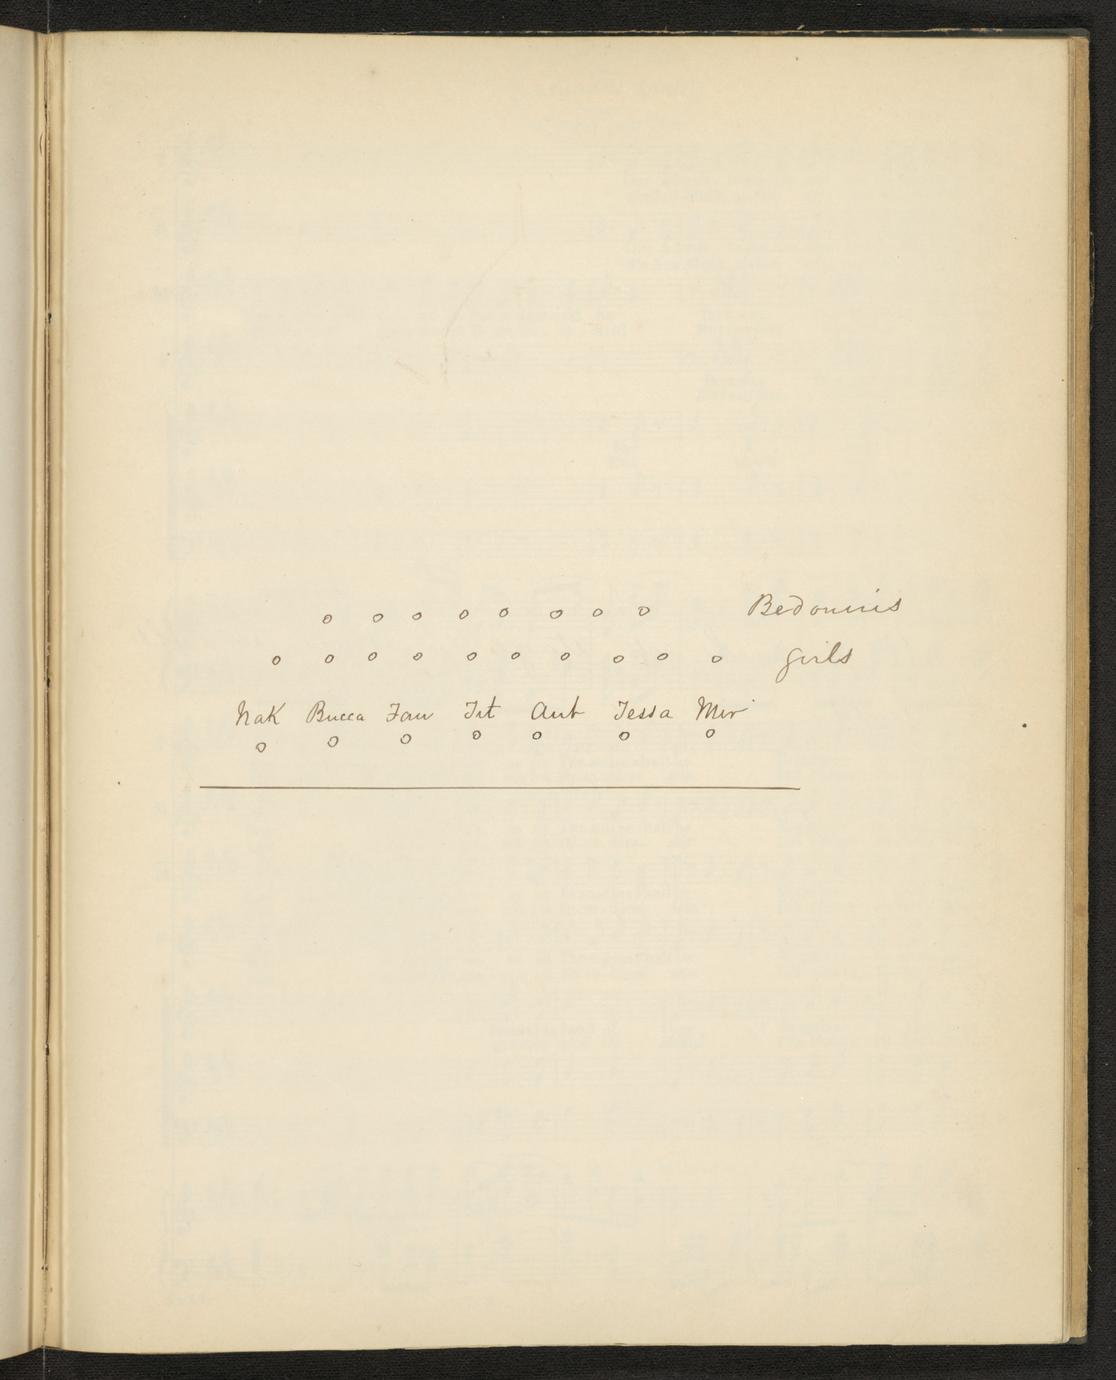 Bedouins
girls
Nak Bucca Fau Tit Aut Tessa Mir